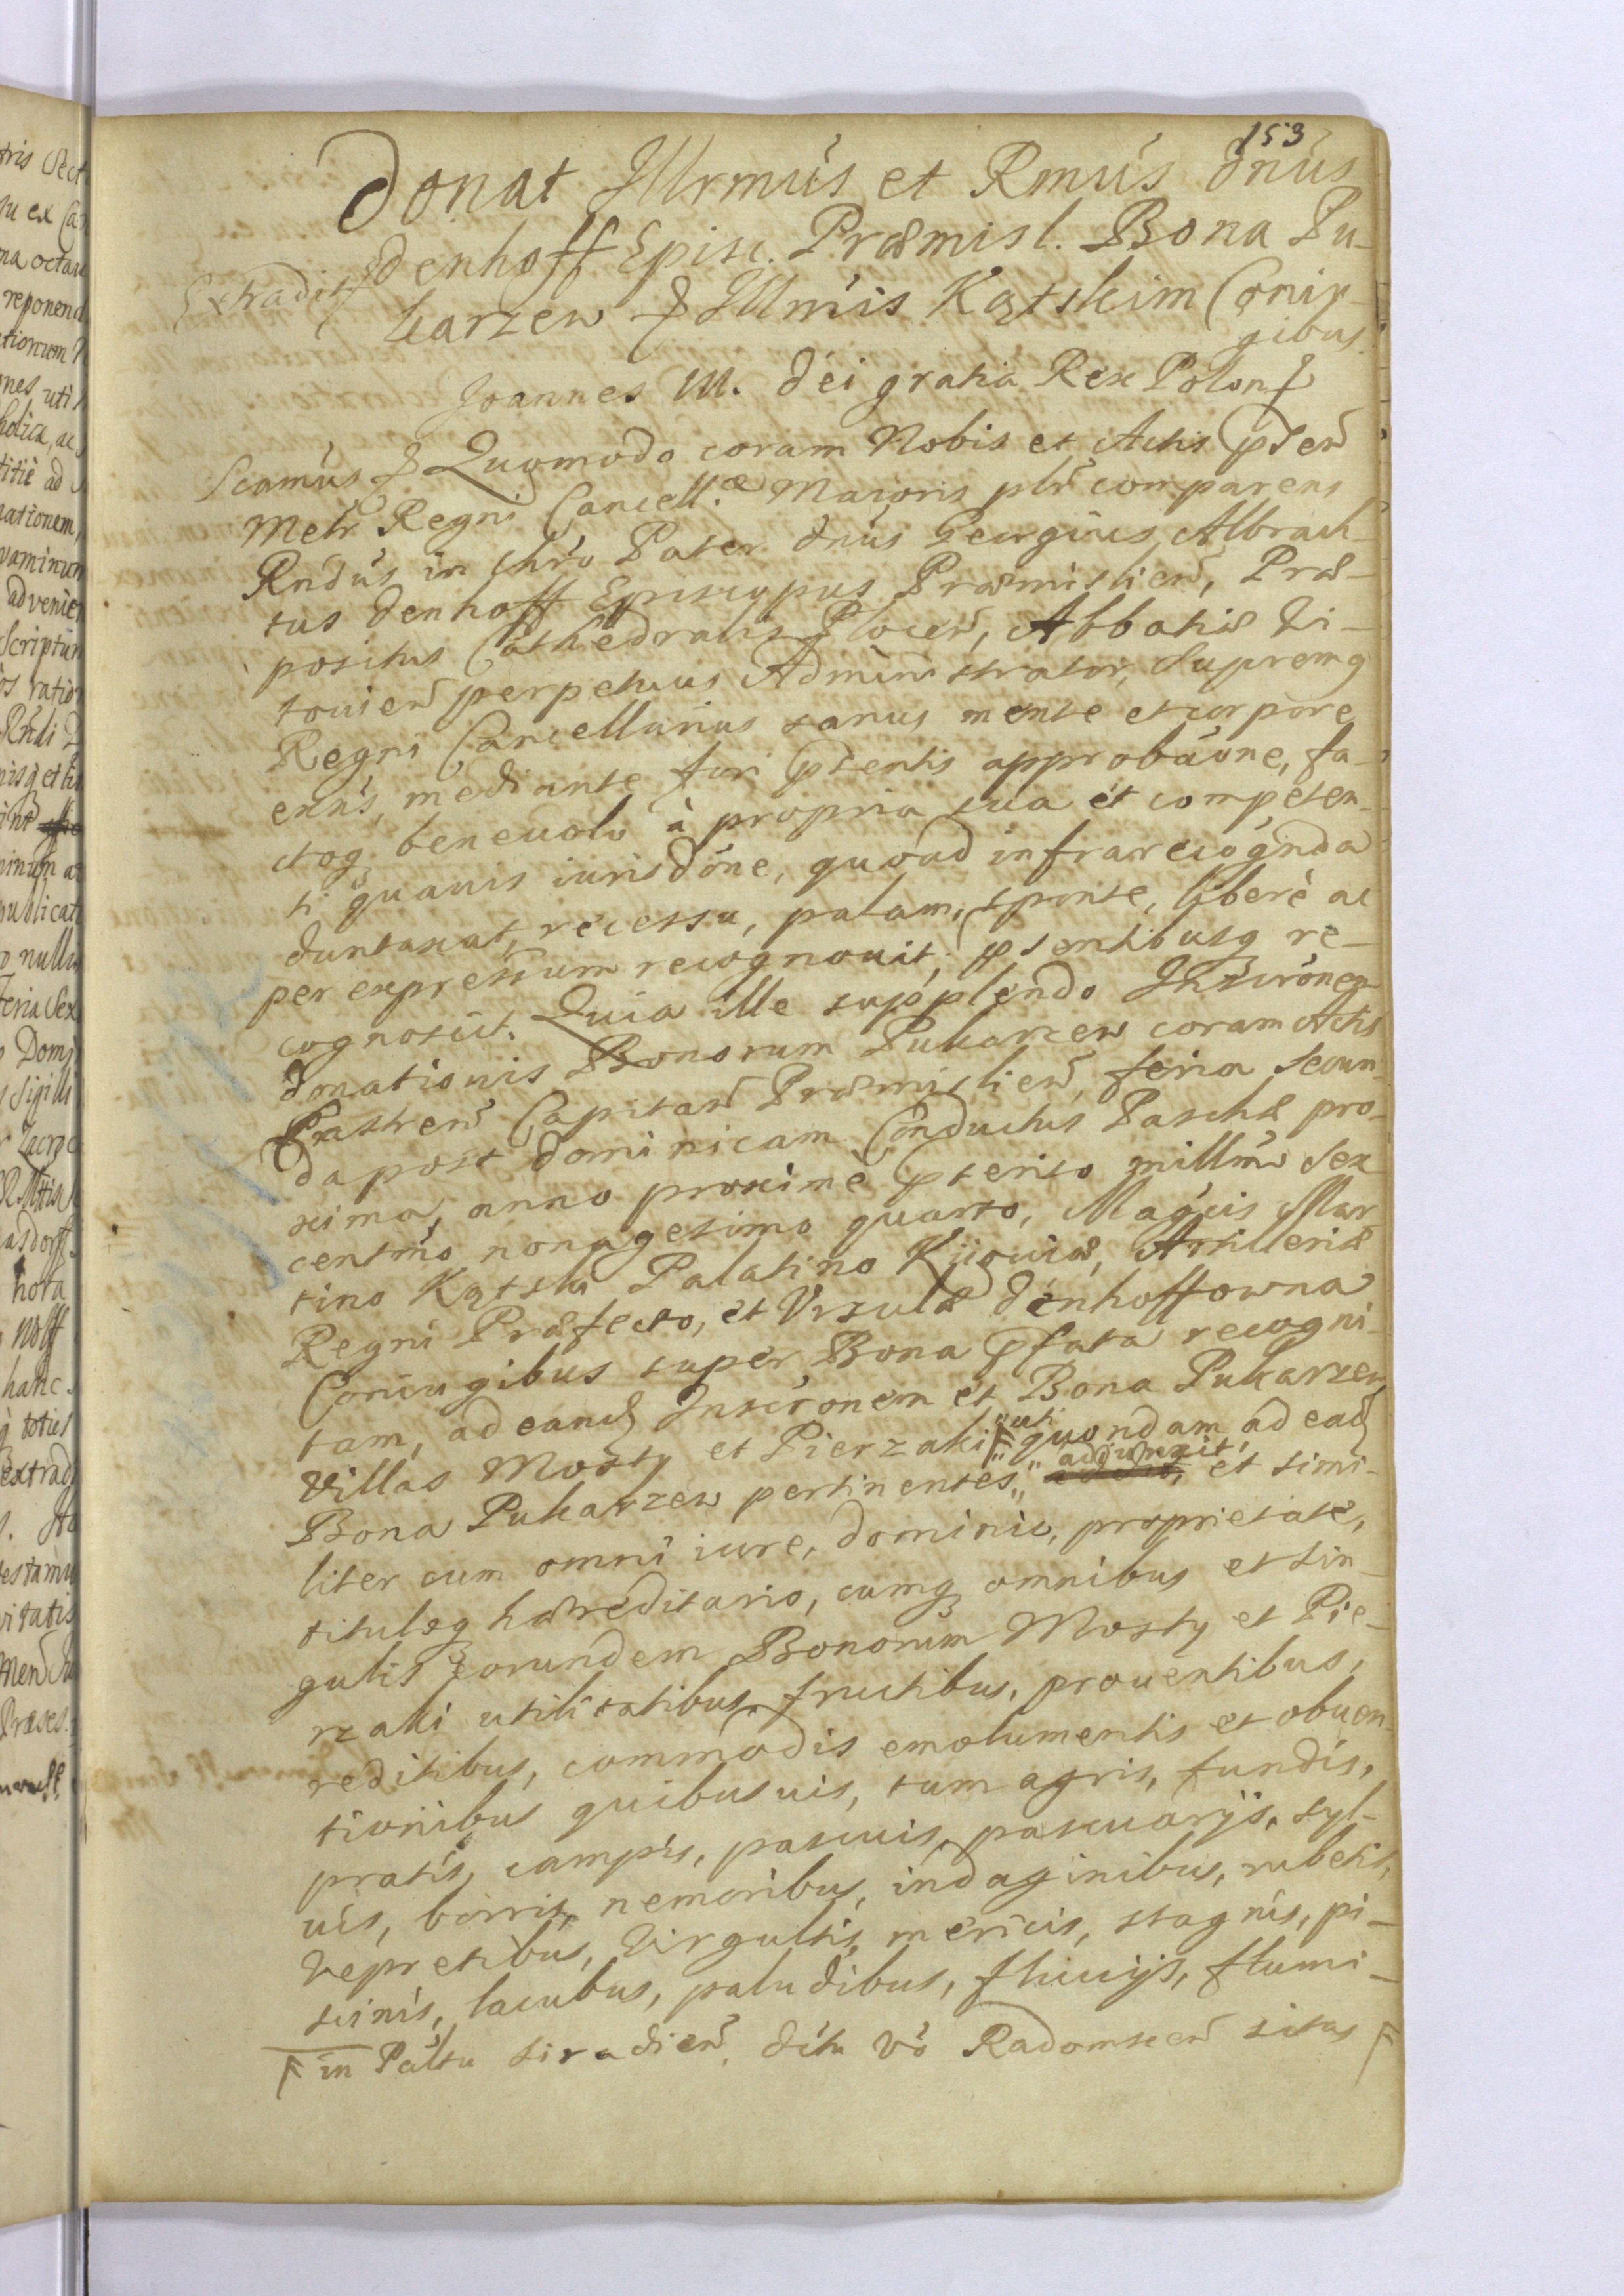 153
Donat Illrmus et Rmus Dnus
Denhoff Episc. Præmisl. Bona Pu-
Extradit
karzew Illmis Kątskim Coniu-
gibus.
Joannes III. Dei gratia Rex Polon
Scamus Quomodo coram Nobis et Actis pnteñ
Metr Regni Cancell.æ Maioris plr comparens
Rndus in Chro Pater Dnus Georgius Albrach-
tus Denhoff Episcopus Præmislieñ, Præ-
positus Cathedralis Ploceñ, Abbatiæ Wi-
towieñ perpetuus Administrator, Supremq
Regni Cancellarius sanus mente et corpore
exñs, mediante Juri pntentis approbaone, fa-
ctoq benevolo à propria sua et competen-
ti quauis iurisdone, quoad infrarecognda
duntaxat, recessu, palam, sponte, liberè ac
per expressum recognouit, psentibusq re-
cognoscit. Quia ille supplendo Inscronem
Donationis Bonorum Pukarzew coram Actis
Castreñ Capitañ Præmislieñ, feria secun-
da post Dominicam Conductus Paschæ pro-
xima, anno proximè pterito millmo sex
centmo nonagesimo quarto, Magcis Mar
tino Kątski Palatino Kijouiæ, Artilleriæ
Regni Præfecto, et Vrsulæ Denhoffowna
Coniugibus super Bona pfata recogni-
tam, ad eand Inscronem et Bona Pukarzew
Villas Mosty et Pierzaki uti quondam ad ead
Bona Pukarzew pertinentes, adiunxit, et simi-
liter cum omni iure, dominio, proprietate,
tituloq hæreditario, cumq omnibus et sin-
gulis eorundem Bonorum Mosty et Pie-
rzaki utilitatibus, fructibus, prouentibus,
reditibus, commodis emolumentis et obuen-
tionibus quibusuis, tam agris, fundis,
pratis, campis, pascuis, pascuarijs, syl-
uis, borris, nemoribus, indaginibus, rubetis,
vepretibus, Virgultis, mericis, stagnis, pi-
scinis, lacubus, paludibus, fluuijs, flumi-
in Pałtu Siradieñ, Dctu vo Radomsceñ sitas